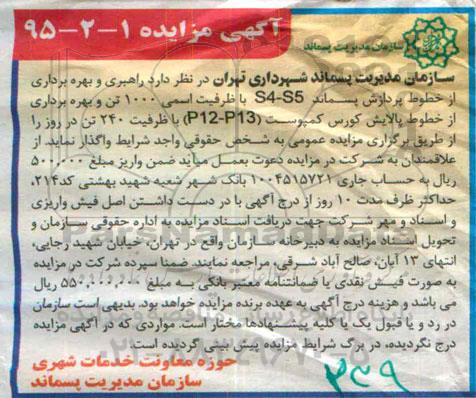 آگهی مزایده ۱-۲-۹۵
سازمان مدیریت پسماند
سازمان مدیریت پسماند شهرداری تهران در نظر دارد راهبری و بهره برداری
از خطوط پردازش پسماند S4-S5 با ظرفیت اسمی ۱۰۰۰ تن و بهره برداری
از خطوط پالایش کورس کمپوست (P12-P13) با ظرفیت ۲۴۰ تن در روز را
از طریق برگزاری مزایده عمومی به شخص حقوقی واجد شرایط واگذار نماید. از
علاقمندان به شرکت در مزایده دعوت بعمل میآید ضمن واریز مبلغ ۵۰۰,۰۰۰
ریال به حساب جاری ۱۰۰۴۵۱۵۷۲۱ بانک شهر شعبه شهید بهشتی کد۲۱۴،
حداکثر ظرف مدت ۱۰ روز از درج آگهی با در دست داشتن اصل فیش واریزی
و اسناد و مهر شرکت جهت دریافت اسناد مزایده به اداره حقوقی سازمان و
تحویل اسناد مزایده به دبیرخانه سازمان واقع در تهران، خیابان شهید رجایی،
انتهای ۱۳ آبان، صالح آباد شرقی، مراجعه نمایند. ضمنا سپرده شرکت در مزایده
به صورت فیش نقدی یا ضمانتنامه معتبر بانکی به مبلغ ۵۵۰,۰۰۰,۰۰۰ ریال
می باشد و هزینه درج آگهی به عهده برنده مزایده خواهد بود. بدیهی است سازمان
در رد و یا قبول یک یا کلیه پیشنهادها مختار است. مواردی که در آگهی مزایده
درج نگردیده، در برگ شرایط مزایده پیش بینی گردیده است.
حوزه معاونت خدمات شهری
سازمان مدیریت پسماند
۳۳۹